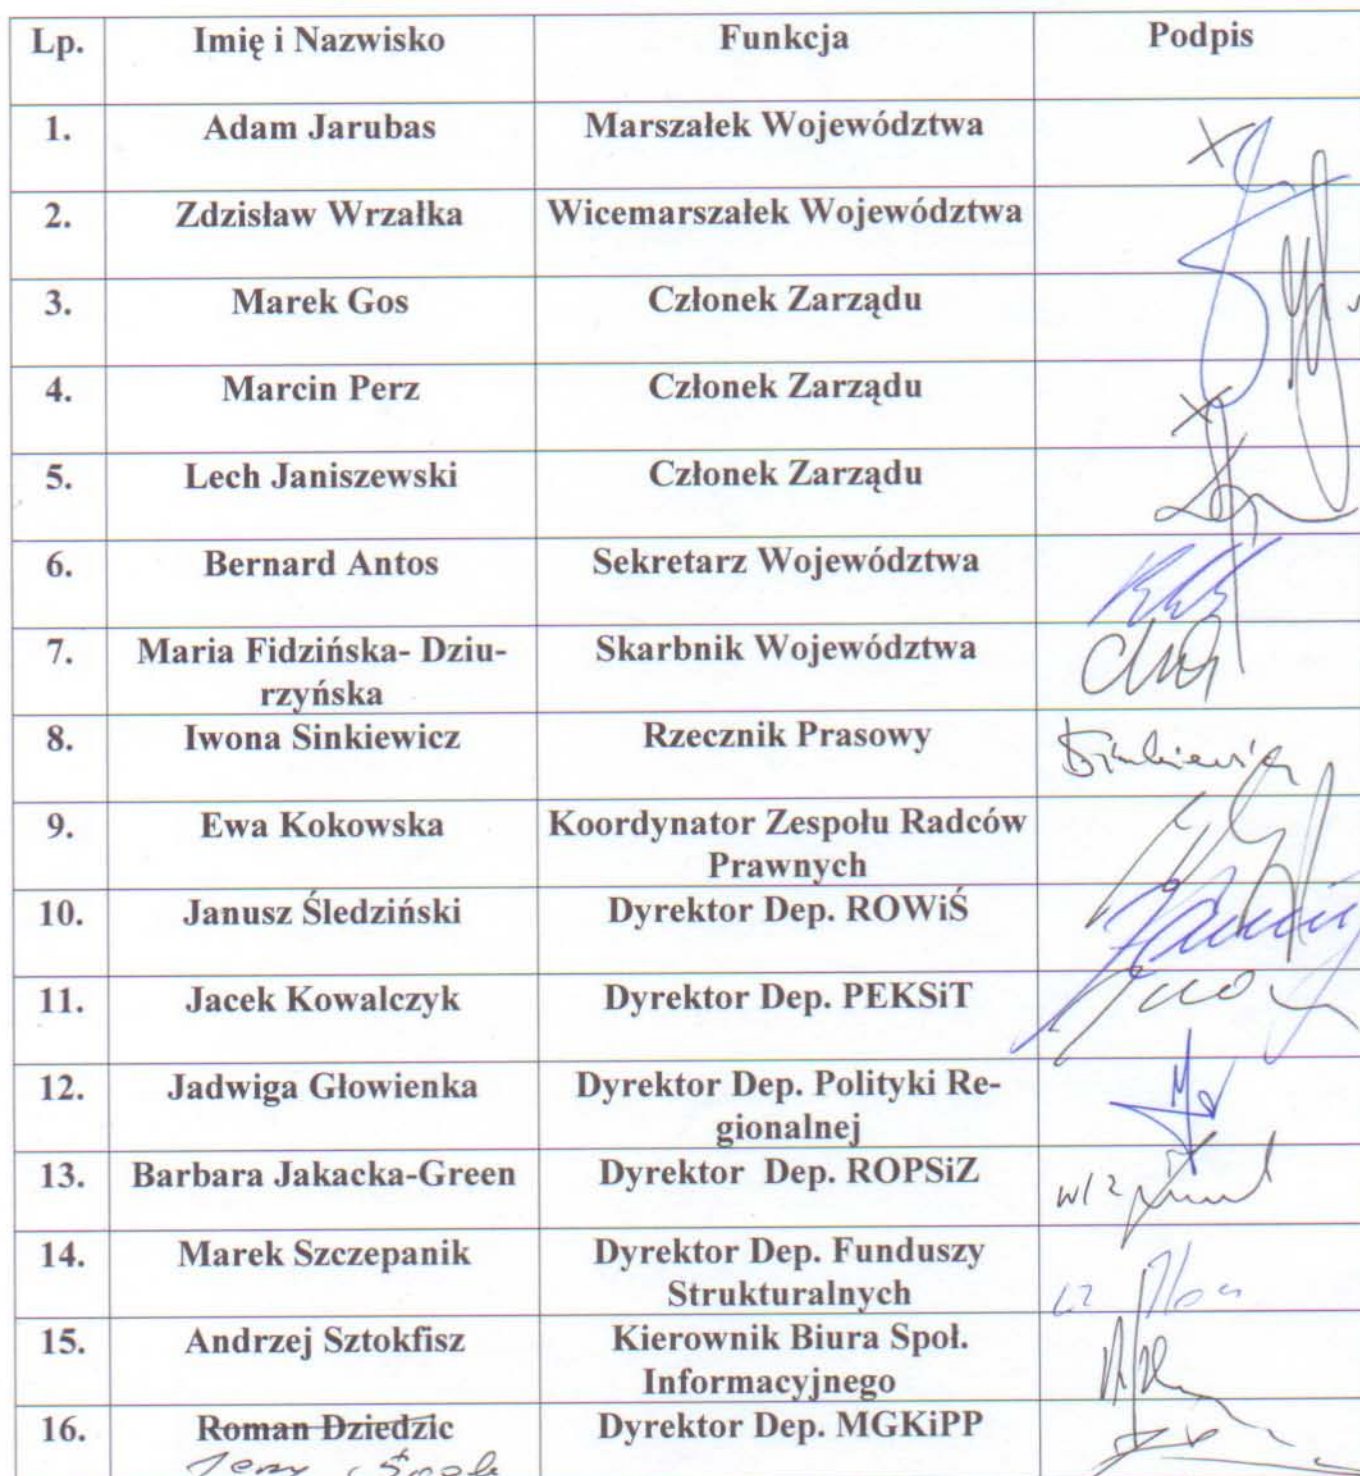 Lp. Imię i Nazwisko Funkcja Podpis
1. Adam Jarubas Marszałek Województwa
2. Zdzisław Wrzałka Wicemarszałek Województwa
3. Marek Gos Członek Zarządu
4. Marcin Perz Członek Zarządu
5. Lech Janiszewski Członek Zarządu
6. Bernard Antos Sekretarz Województwa
7. Maria Fidzińska- Dziu- Skarbnik Województwa
rzyńska
8. Iwona Sinkiewicz Rzecznik Prasowy
9. Ewa Kokowska Koordynator Zespołu Radców
Prawnych
10. Janusz Śledziński Dyrektor Dep. ROWiŚ
11. Jacek Kowalczyk Dyrektor Dep. PEKSiT
12. Jadwiga Głowienka Dyrektor Dep. Polityki Re-
gionalnej
13. Barbara Jakacka-Green Dyrektor Dep. ROPSiZ
14. Marek Szczepanik Dyrektor Dep. Funduszy
Strukturalnych
15. Andrzej Sztokfisz Kierownik Biura Społ.
Informacyjnego
16. Roman Dziedzic Dyrektor Dep. MGKiPP